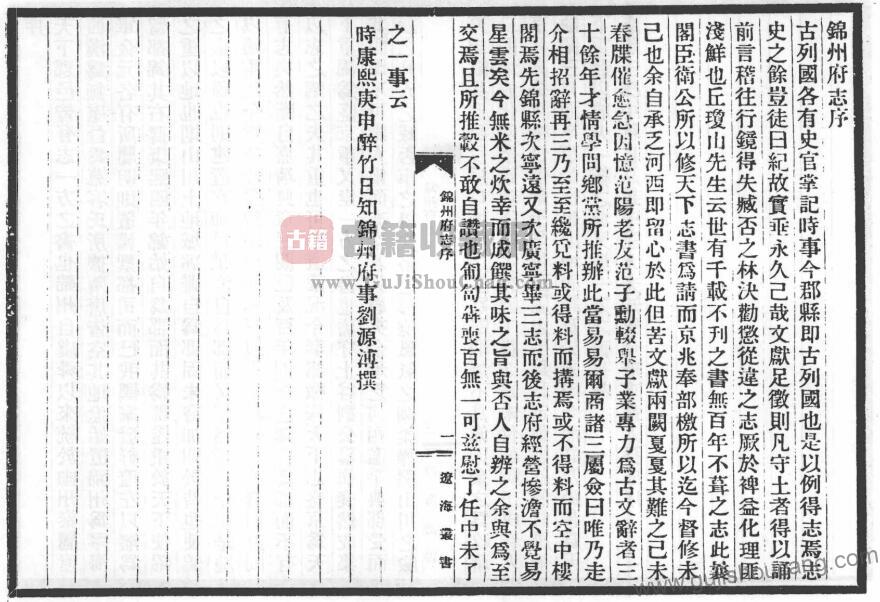 錦州府志序
古列國各有史官掌記時事今郡縣即古列國也是以例得志焉志
史之餘豈徒曰紀故實垂永久已哉文獻足徵則凡守土者得以誦
前言稽往行鏡得失臧否之林決勸懲從違之志厥於裨益化理匪
淺鮮也丘瓊山先生云世有千載不刊之書無百年不葺之志此
閣臣衛公所以修天下志書為請而京兆奉部檄所以迄今督修未
已也余自承乏河西即留心於此但苦文獻兩闕戛戛其難之己未
春牒催愈急因憶范陽老友范子勳輟舉子業專力為古文辭者三
十餘年才情學問鄉黨所推辦此當易易爾商諸三屬僉曰唯乃走
介相招辭再三乃至至纔覓料或得料而搆焉或不得料而空中樓
閣焉先錦縣次寧遠又次廣寧畢三志而後志府經營慘澹不覺易
星雲矣今無米之炊幸而成饌其味之旨與否人自辨之余與為至
交焉且所推轂不敢自讚也匍匐犇喪百無一可茲慰了任中未了
錦州府志序
一
遼海叢書
之一事云
時康熙庚申醉竹日知錦州府事劉源溥撰
古籍
www.GuJiShouCang.com
www.gujishoucang.com